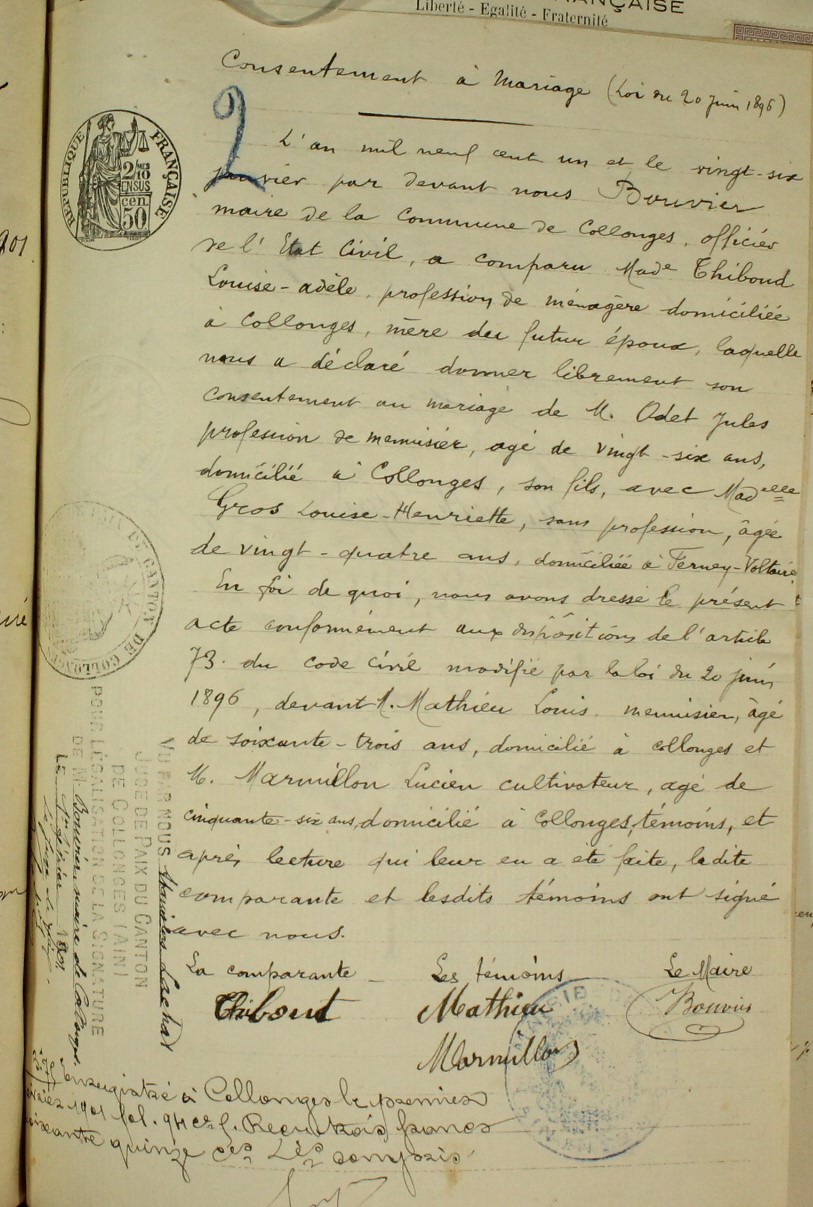 FRANÇAISE
Liberté - Egalité - Fraternité
Consentement à Mariage (Loi du 20 juin 1896)
2
L'an mil neuf cent un et le vingt-six
janvier par devant nous Bouvier
maire de la Commune de Collonges, officier
de l'Etat Civil, a comparu Made Thiboud
Louise-adèle, profession de ménagère domiciliée
à Collonges, mère du futur époux, laquelle
nous a déclaré donner librement son
consentement au mariage de M. Odet Jules
profession de menuisier, agé de vingt-six ans,
domicilié à Collonges, son fils, avec Madelle
Gros Louise-Henriette, sans profession, âgée
de vingt-quatre ans, domiciliée à Ferney-Voltaire
En foi de quoi, nous avons dressé le présent
acte conformément aux dispositions de l'article
73. du code civil modifié par la loi du 20 juin
1896, devant M. Mathieu Louis menuisier, âgé
de soixante-trois ans, domicilié à Collonges et
M. Marmillon Lucien cultivateur, agé de
cinquante-six ans, domicilié à Collonges, témoins, et
après lecture qui leur en a été faite, ladite
comparante et lesdits témoins ont signé
avec nous.
La comparante Les témoins Le Maire
Thiboud Mathieu Bouvier
Marmillon
Enregistré à Collonges le premier
février 1901 fol. 94 Reçu trois francs
soixante quinze ces Les compris.
REPUBLIQUE FRANÇAISE
2/10
EN SUS
50 cen.
DE CANTON DE COLLONGES
VU PAR NOUS
JUGE DE PAIX DU CANTON
DE COLLONGES (AIN)
POUR LÉGALISATION DE LA SIGNATURE
DE M. Bouvier maire de Collonges
LE 1er février 1901
Le juge de paix
901
MAIRIE